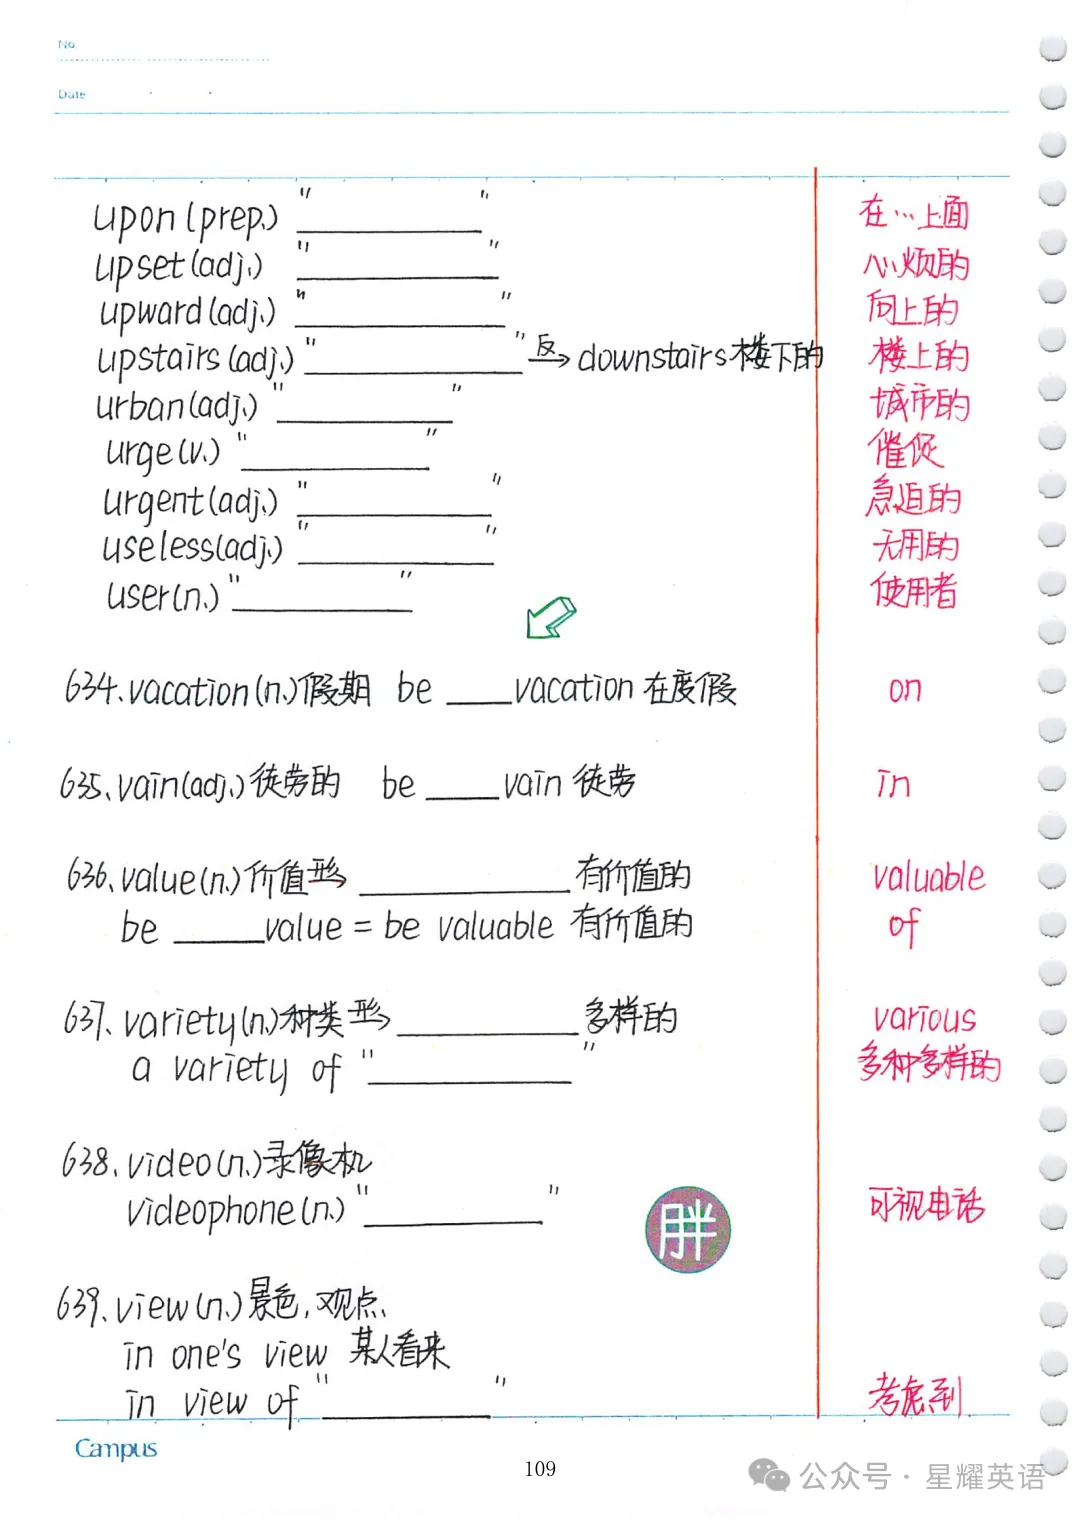 No.
Date
upon (prep.) " ________ " 在…上面
upset (adj.) " ________ " 心烦的
upward (adj.) " ________ " 向上的
upstairs (adj.) " ________ " 反→ downstairs 楼下的 楼上的
urban (adj.) " ________ " 城市的
urge (v.) " ________ " 催促
urgent (adj.) " ________ " 急迫的
useless (adj.) " ________ " 无用的
user (n.) " ________ " 使用者
634. vacation (n.) 假期 be ____ vacation 在度假 on
635. vain (adj.) 徒劳的 be ____ vain 徒劳 in
636. value (n.) 价值 形→ ________ 有价值的 valuable
be ____ value = be valuable 有价值的 of
637. variety (n.) 种类 形→ ________ 多样的 various
a variety of " ________ " 多种多样的
638. video (n.) 录像机
videophone (n.) " ________ " 可视电话
胖
639. view (n.) 景色, 观点.
in one's view 某人看来
in view of " ________ " 考虑到
Campus
109
公众号 · 星耀英语